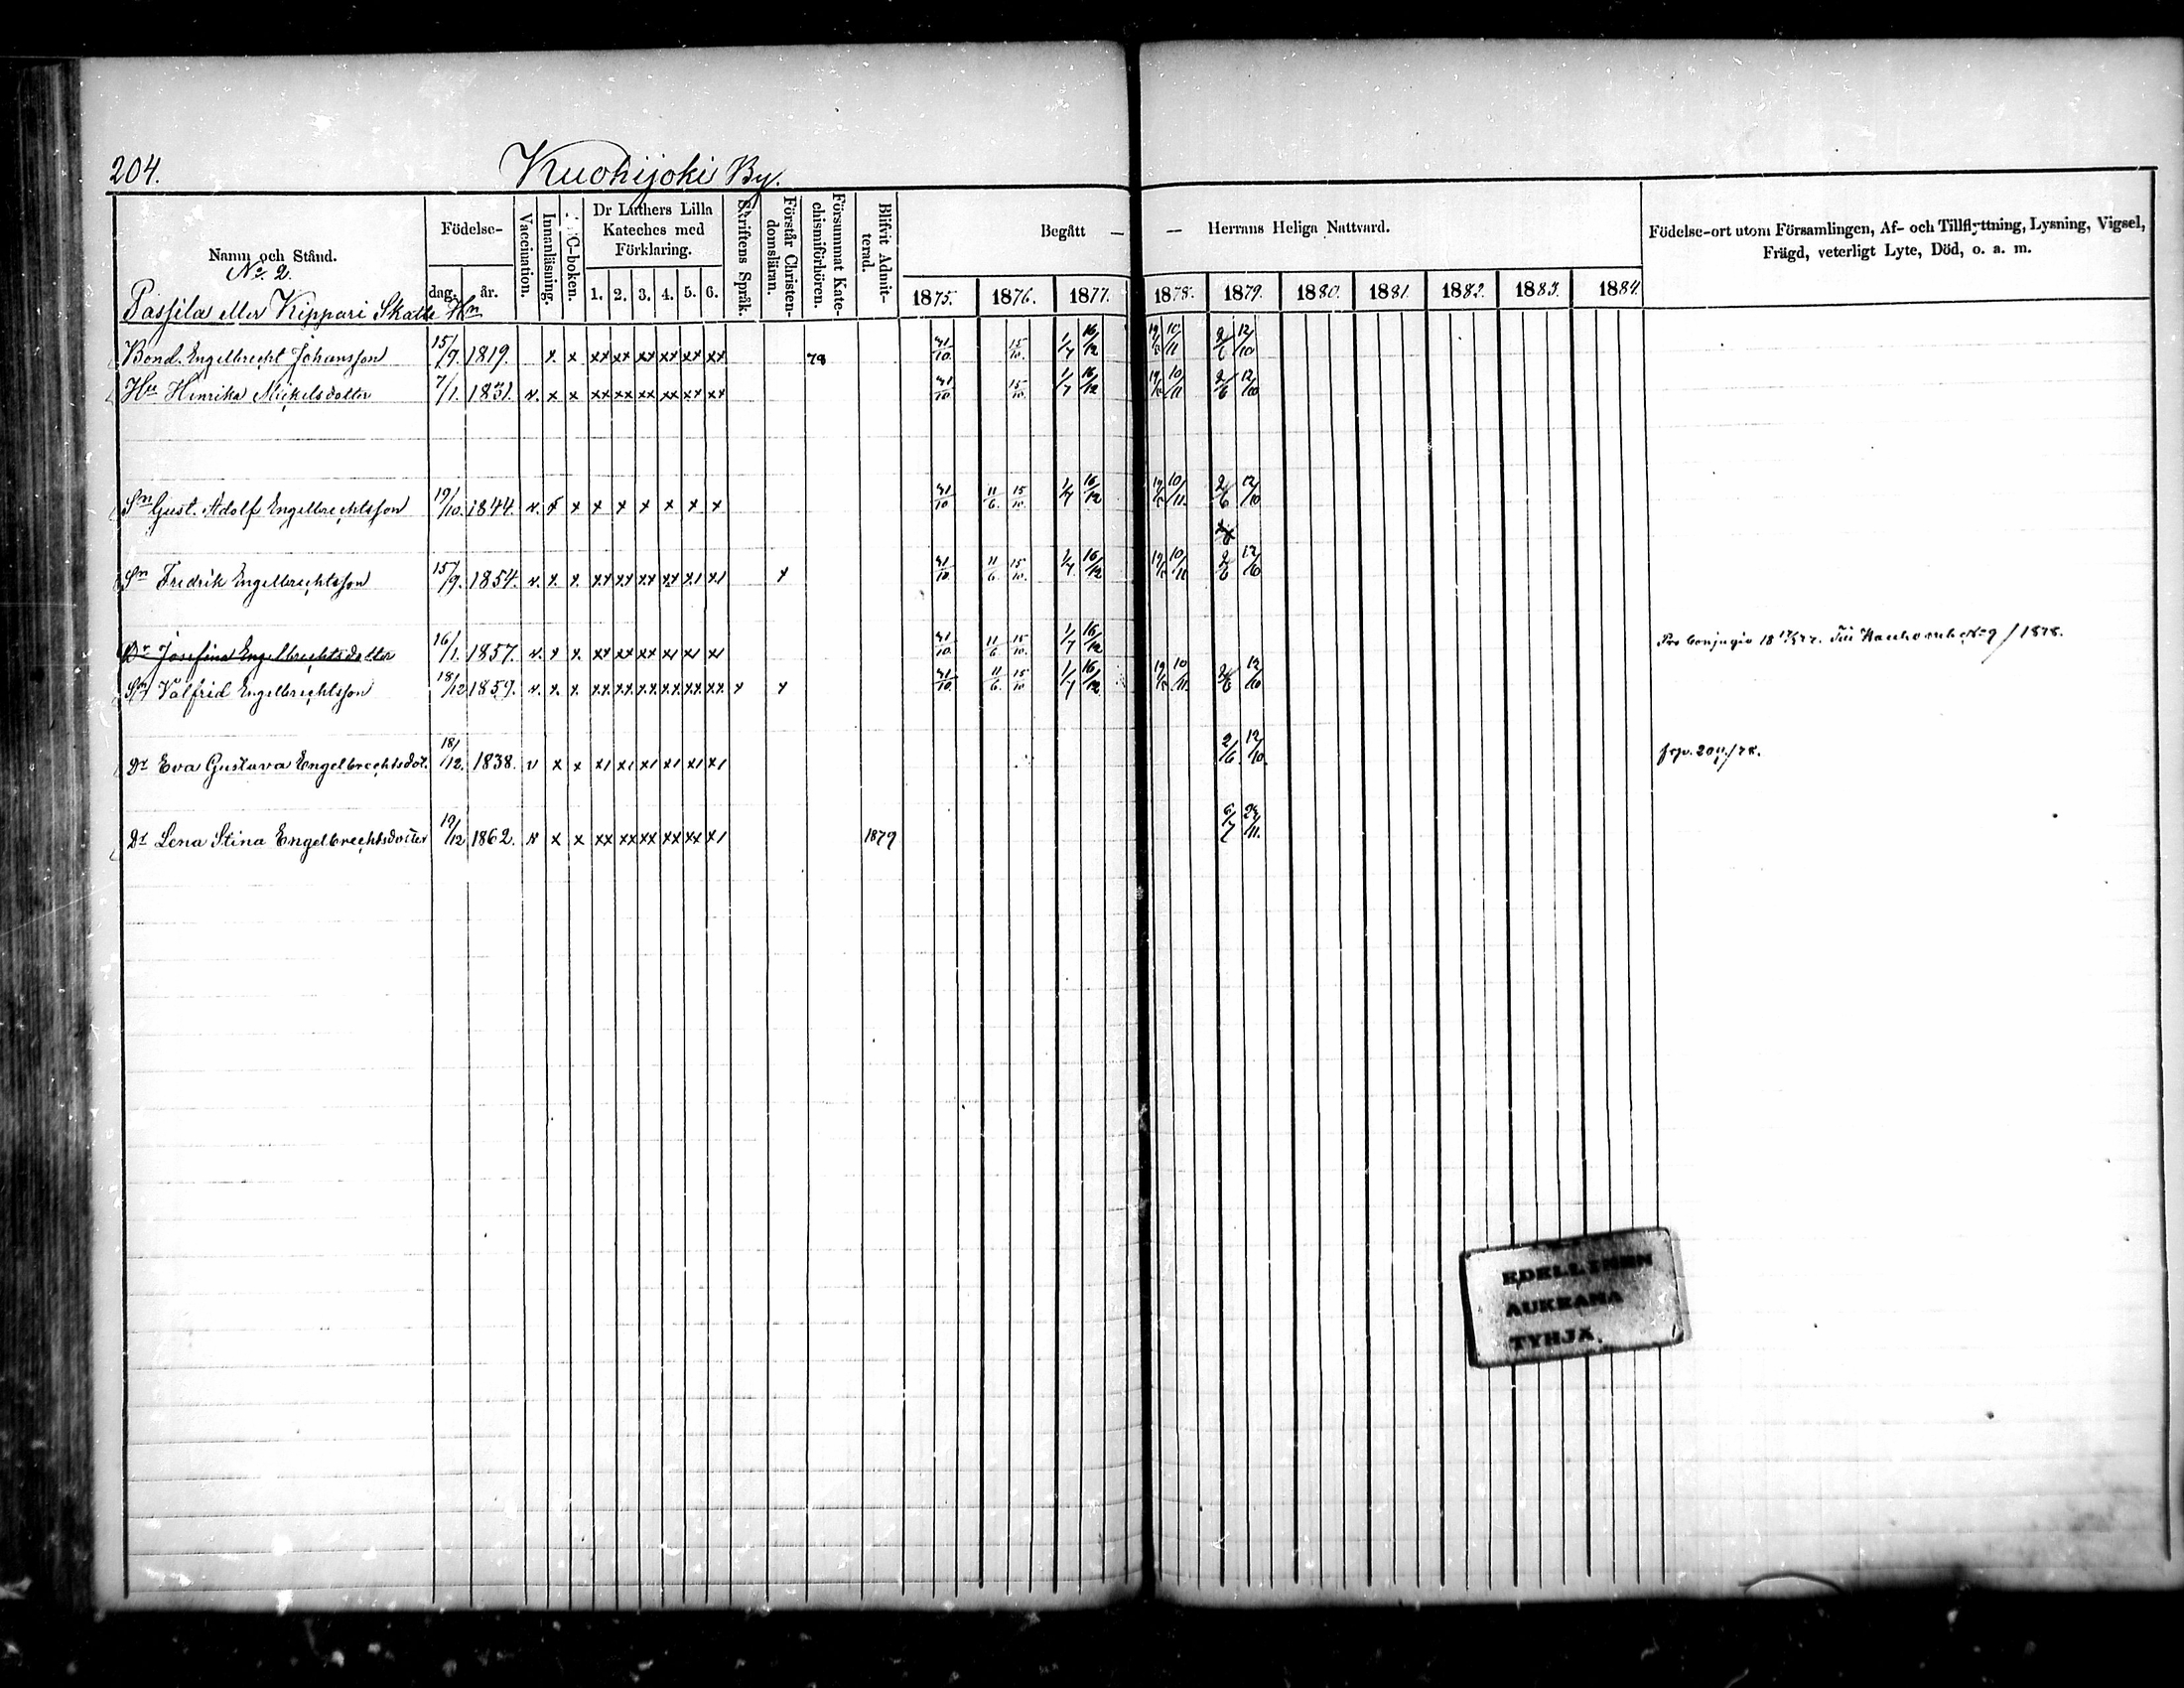 204. Kuohijoki By.
Namn och Stånd.
Födelse-
dag. år.
Vaccination.
Innanläsning.
C-boken.
Dr Luthers Lilla Kateches med Förklaring.
1. 2. 3. 4. 5. 6.
Skriftens Språk.
Förstår Christen-domsläran.
Försummat Kate-chismiförhören.
Blifvit Admit-terad.
Begått — — Herrans Heliga Nattvard.
1875. 1876. 1877. 1878. 1879. 1880. 1881. 1882. 1883. 1884.
Födelse-ort utom Församlingen, Af- och Tillflyttning, Lysning, Vigsel,
Frägd, veterligt Lyte, Död, o. a. m.
No 2.
Passila eller Kippari Skatte Hn
Bond. Engelbrecht Johansson 15/7. 1819. x x xx xx xx xx xx xx 78 31/10 15/10 1/7 16/12 10/11 2/6 12/10
Hu Henrika Mickelsdotter 7/1. 1831. v. x x xx xx xx xx xx xx 31/10 15/10 1/7 16/12 10/11 2/6 12/10
Sn Gust. Adolf Engelbrechtsson 19/10. 1844. v. x x x x x x x x 31/10 11/6 15/10 1/7 16/12 10/11 2/6 12/10
Sn Fredrik Engelbrechtsson 15/9. 1854. v. x x xx xx xx xx x1 x1 x 31/10 11/6 15/10 1/7 16/12 10/11 2/6 12/10
Dr Josefina Engelbrechtsdotter 16/1. 1857. v. x x xx xx xx xx x1 x1 31/10 11/6 15/10 1/7 16/12 Pro Conjugio 18 77. Till No 9 / 1878.
Sn Valfrid Engelbrechtsson 18/12 1859. v. x x xx xx xx xx xx xx x x 31/10 11/6 15/10 1/7 16/12 10/11 2/6 12/10
Dr Eva Gustava Engelbrechtsdot. 18/12. 1838. v x x x1 x1 x1 x1 x1 x1 2/6 12/10. 20/11/78.
Dr Lena Stina Engelbrechtsdotter 19/12 1862. v x x xx xx xx xx xx x1 1879 6/7 23/11.
EDELLINEN
AUKEAMA
TYHJÄ.